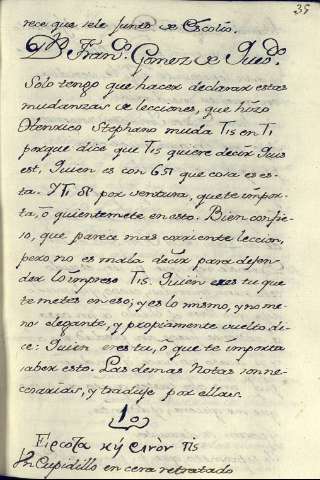 35
rece que sele junto de Escolio.
D. Fran.co Gomez de Queu.do
Solo tengo que hacer declarar estas
mudanzas de lecciones, que hizo
Henrico Stephano muda Tis en Ti
porque dice que Tis quiere decir Quis
est, Quien es con que cosa es es-
ta. Y Ti por ventura, que te impor-
ta, ò quien te mete en esto. Bien confie-
so, que parece mas corriente leccion,
pero no es mala decir para defen-
der lo impreso Tis. Quien eres tu que
te metes en eso; y es lo mismo, y no me-
no elegante, y propiamente vuelto di-
ce: Quien eres tu, ò que te importa
saber esto. Las demas Notas son ne-
cesarias, y traduje por ellas.
10
τις
Un Cupidillo en cera retratado